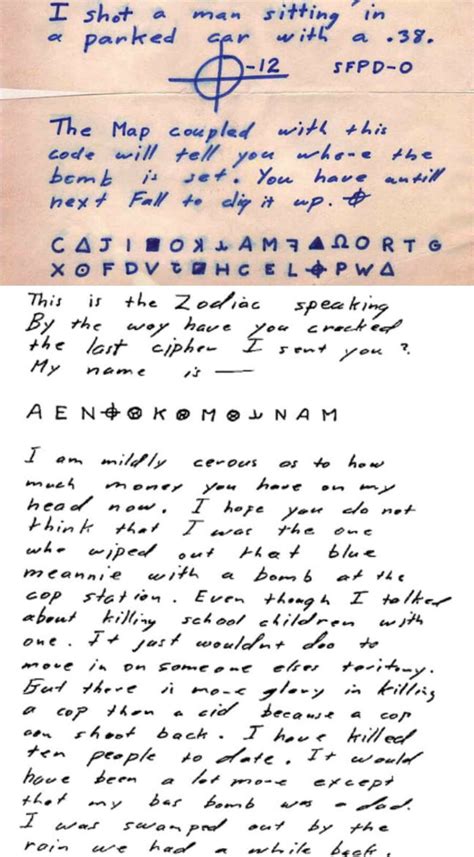 I shot a man sitting in
a parked car with a .38.
⌖-12 SFPD-0
The Map coupled with this
code will tell you where the
bomb is set. You have untill
next Fall to dig it up. ⌖
C Δ J I ■ O ꓘ ⅄ A M ꟻ ▲ Ω O R T G
X ⊙ F D V ⊡ H C E L ⌖ P W Δ
This is the Zodiac speaking
By the way have you cracked
the last cipher I sent you ?
My name is —
A E N ⌖ ⊗ K ⊗ M ⊗ ⅄ N A M
I am mildly cerous as to how
much money you have on my
head now. I hope you do not
think that I was the one
who wiped out that blue
meannie with a bomb at the
cop station. Even though I talked
about killing school children with
one. It just wouldnt doo to
move in on someone elses teritory.
But there is more glory in killing
a cop than a cid because a cop
can shoot back. I have killed
ten people to date. It would
have been a lot more except
that my bus bomb was a dud.
I was swamped out by the
rain we had a while back.